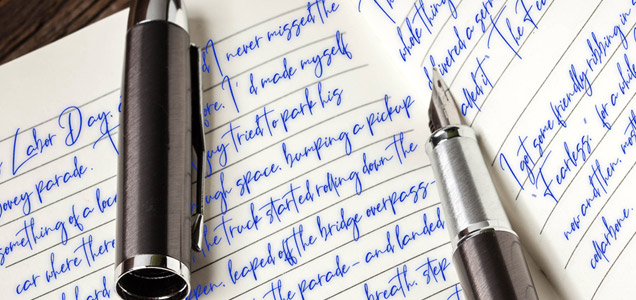 Labor Day, I never missed the
parade. I'd made myself
something of a tried to park his
car where there space, bumping a pickup
the truck started rolling down the
leaped off the bridge overpass-
the parade- and landed
breath, step
whole thing
called it "The
I got some friendly ribbing in
"Fearless," for a while
now and then,
collarbone.